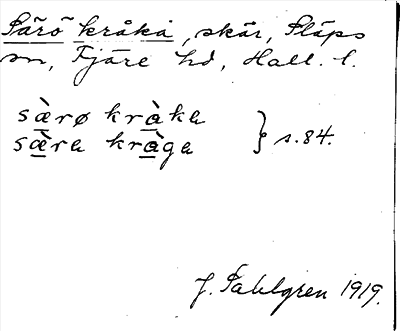 Särö kråka, skär, Släps
sn, Fjäre hd, Hall. l.
sæ̀rø kràka
sæ̀ra kràga } s. 84.
J. Sahlgren 1919.